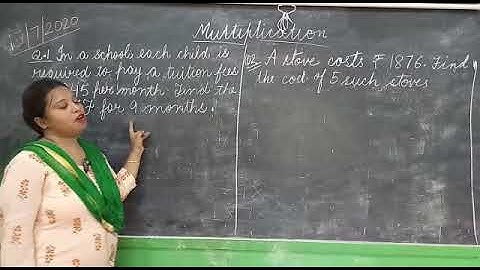 /7/2020
Multiplication
Q.1 In a school each child is
required to pay a tuition fees
45 per month. Find the
for 9 months.
Q2. A stove costs ₹ 1876. Find
the cost of 5 such stoves